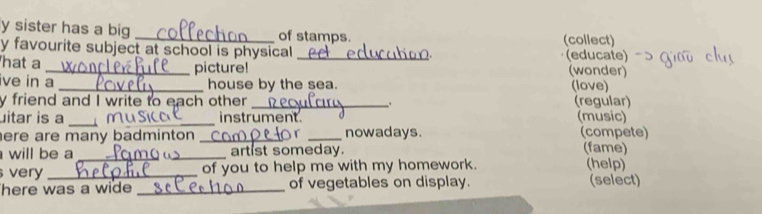 y sister has a big collection of stamps. (collect)
y favourite subject at school is physical education. (educate) -> giáo dục
hat a wonderful picture! (wonder)
ive in a lovely house by the sea. (love)
y friend and I write to each other Regulary. (regular)
uitar is a musical instrument. (music)
ere are many badminton competor nowadays. (compete)
will be a famous artist someday. (fame)
s very helpful of you to help me with my homework. (help)
here was a wide selection of vegetables on display. (select)